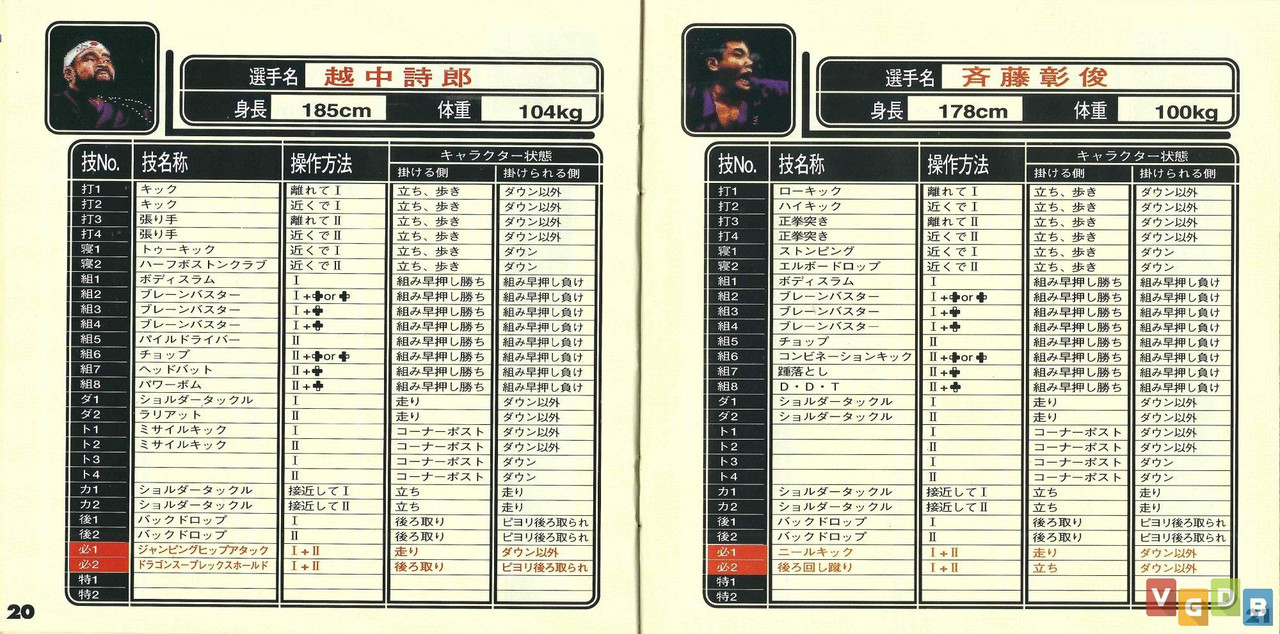 選手名 越中詩郎
身長 185cm 体重 104kg
技No. 技名称 操作方法 キャラクター状態
掛ける側 掛けられる側
打1 キック 離れてⅠ 立ち、歩き ダウン以外
打2 キック 近くでⅠ 立ち、歩き ダウン以外
打3 張り手 離れてⅡ 立ち、歩き ダウン以外
打4 張り手 近くでⅡ 立ち、歩き ダウン以外
寝1 トゥーキック 近くでⅠ 立ち、歩き ダウン
寝2 ハーフボストンクラブ 近くでⅡ 立ち、歩き ダウン
組1 ボディスラム Ⅰ 組み早押し勝ち 組み早押し負け
組2 ブレーンバスター Ⅰ+✚or✚ 組み早押し勝ち 組み早押し負け
組3 ブレーンバスター Ⅰ+✚ 組み早押し勝ち 組み早押し負け
組4 ブレーンバスター Ⅰ+✚ 組み早押し勝ち 組み早押し負け
組5 パイルドライバー Ⅱ 組み早押し勝ち 組み早押し負け
組6 チョップ Ⅱ+✚or✚ 組み早押し勝ち 組み早押し負け
組7 ヘッドバット Ⅱ+✚ 組み早押し勝ち 組み早押し負け
組8 パワーボム Ⅱ+✚ 組み早押し勝ち 組み早押し負け
ダ1 ショルダータックル Ⅰ 走り ダウン以外
ダ2 ラリアット Ⅱ 走り ダウン以外
ト1 ミサイルキック Ⅰ コーナーポスト ダウン以外
ト2 ミサイルキック Ⅱ コーナーポスト ダウン以外
ト3 Ⅰ コーナーポスト ダウン
ト4 Ⅱ コーナーポスト ダウン
カ1 ショルダータックル 接近してⅠ 立ち 走り
カ2 ショルダータックル 接近してⅡ 立ち 走り
後1 バックドロップ Ⅰ 後ろ取り ピヨリ後ろ取られ
後2 バックドロップ Ⅱ 後ろ取り ピヨリ後ろ取られ
必1 ジャンピングヒップアタック Ⅰ+Ⅱ 走り ダウン以外
必2 ドラゴンスープレックスホールド Ⅰ+Ⅱ 後ろ取り ピヨリ後ろ取られ
特1
特2
20
選手名 斉藤彰俊
身長 178cm 体重 100kg
技No. 技名称 操作方法 キャラクター状態
掛ける側 掛けられる側
打1 ローキック 離れてⅠ 立ち、歩き ダウン以外
打2 ハイキック 近くでⅠ 立ち、歩き ダウン以外
打3 正拳突き 離れてⅡ 立ち、歩き ダウン以外
打4 正拳突き 近くでⅡ 立ち、歩き ダウン以外
寝1 ストンピング 近くでⅠ 立ち、歩き ダウン
寝2 エルボードロップ 近くでⅡ 立ち、歩き ダウン
組1 ボディスラム Ⅰ 組み早押し勝ち 組み早押し負け
組2 ブレーンバスター Ⅰ+✚or✚ 組み早押し勝ち 組み早押し負け
組3 ブレーンバスター Ⅰ+✚ 組み早押し勝ち 組み早押し負け
組4 ブレーンバスター Ⅰ+✚ 組み早押し勝ち 組み早押し負け
組5 チョップ Ⅱ 組み早押し勝ち 組み早押し負け
組6 コンビネーションキック Ⅱ+✚or✚ 組み早押し勝ち 組み早押し負け
組7 踵落とし Ⅱ+✚ 組み早押し勝ち 組み早押し負け
組8 D・D・T Ⅱ+✚ 組み早押し勝ち 組み早押し負け
ダ1 ショルダータックル Ⅰ 走り ダウン以外
ダ2 ショルダータックル Ⅱ 走り ダウン以外
ト1 Ⅰ コーナーポスト ダウン以外
ト2 Ⅱ コーナーポスト ダウン以外
ト3 Ⅰ コーナーポスト ダウン
ト4 Ⅱ コーナーポスト ダウン
カ1 ショルダータックル 接近してⅠ 立ち 走り
カ2 ショルダータックル 接近してⅡ 立ち 走り
後1 バックドロップ Ⅰ 後ろ取り ピヨリ後ろ取られ
後2 バックドロップ Ⅱ 後ろ取り ピヨリ後ろ取られ
必1 ニールキック Ⅰ+Ⅱ 走り ダウン以外
必2 後ろ回し蹴り Ⅰ+Ⅱ 立ち ダウン以外
特1
特2
21
VGDB